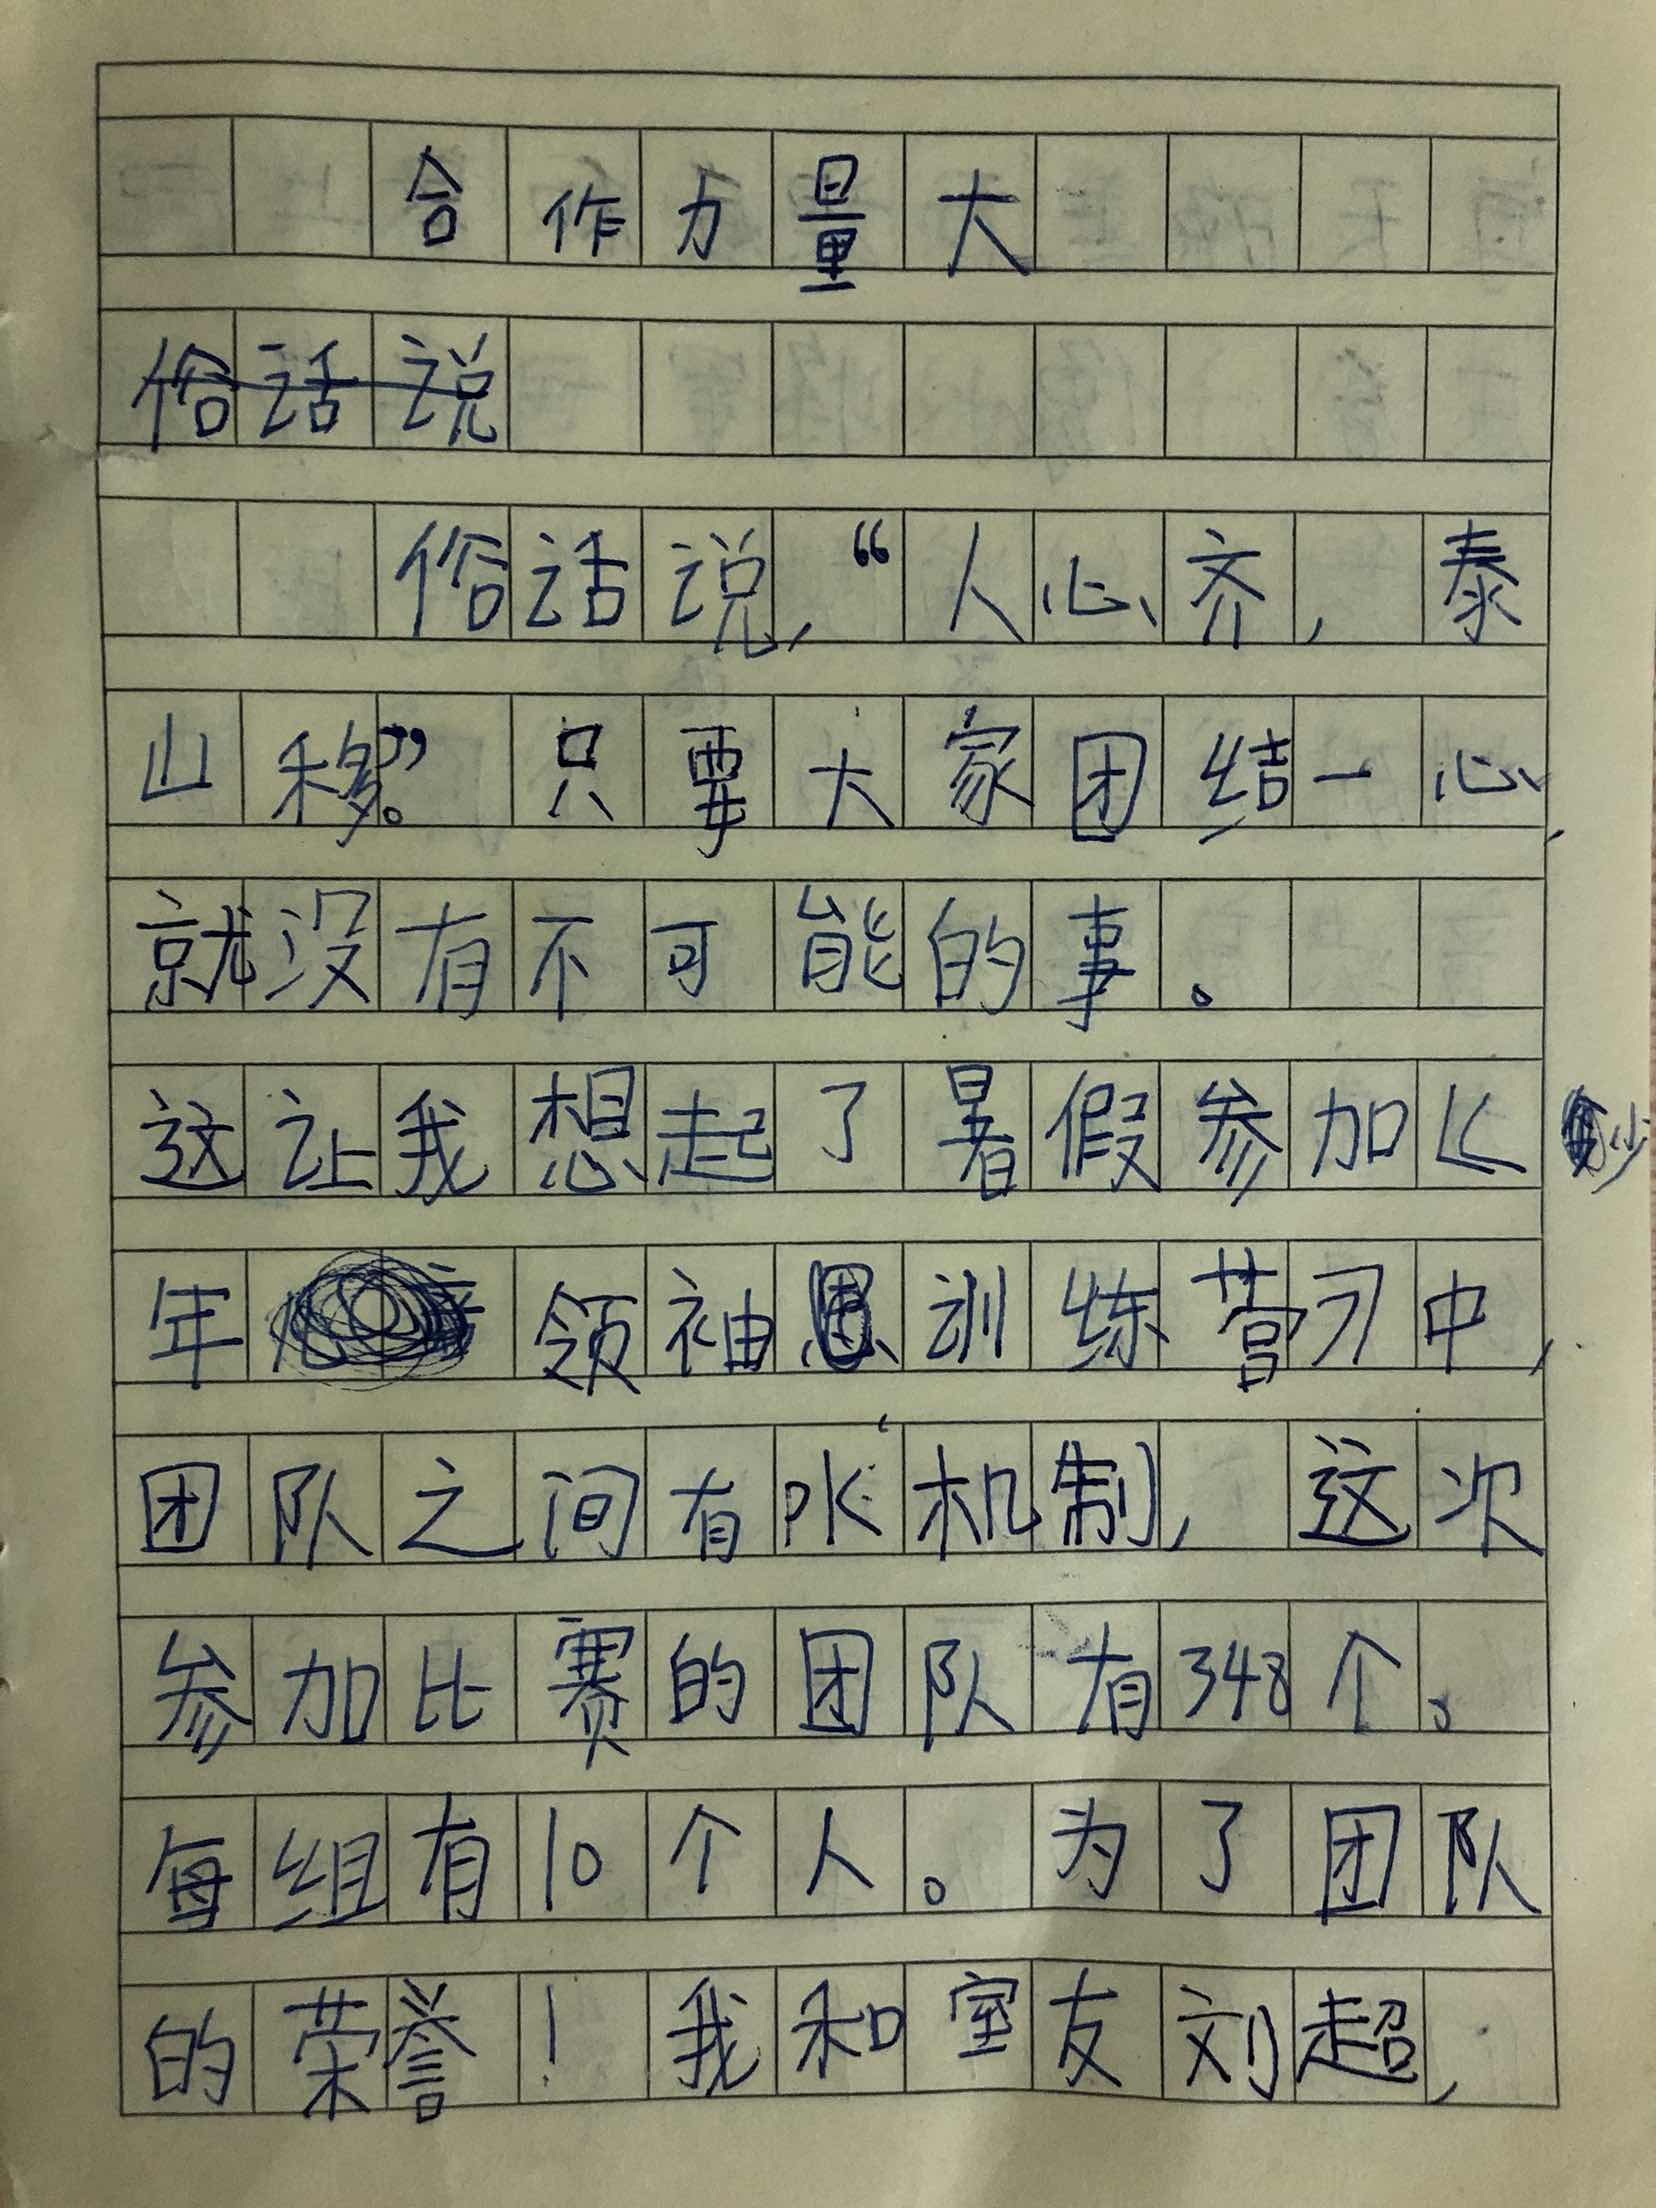 合作力量大
俗话说
俗话说，“人心齐，泰
山移。”只要大家团结一心，
就没有不可能的事。
这让我想起了暑假参加《少
年领袖训练营》中，
团队之间有PK机制，这次
参加比赛的团队有348个。
每组有10个人。为了团队
的荣誉！我和室友刘超，